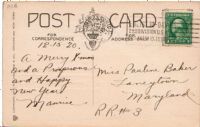 POST CARD
FOR CORRESPONDENCE
FOR ADDRESS ONLY
12-15-20.
A Merry Xmas
And a Prosperous
and Happy
New Year
Maurice
Miss Pauline Baker
Taneytown
Maryland
RR #3